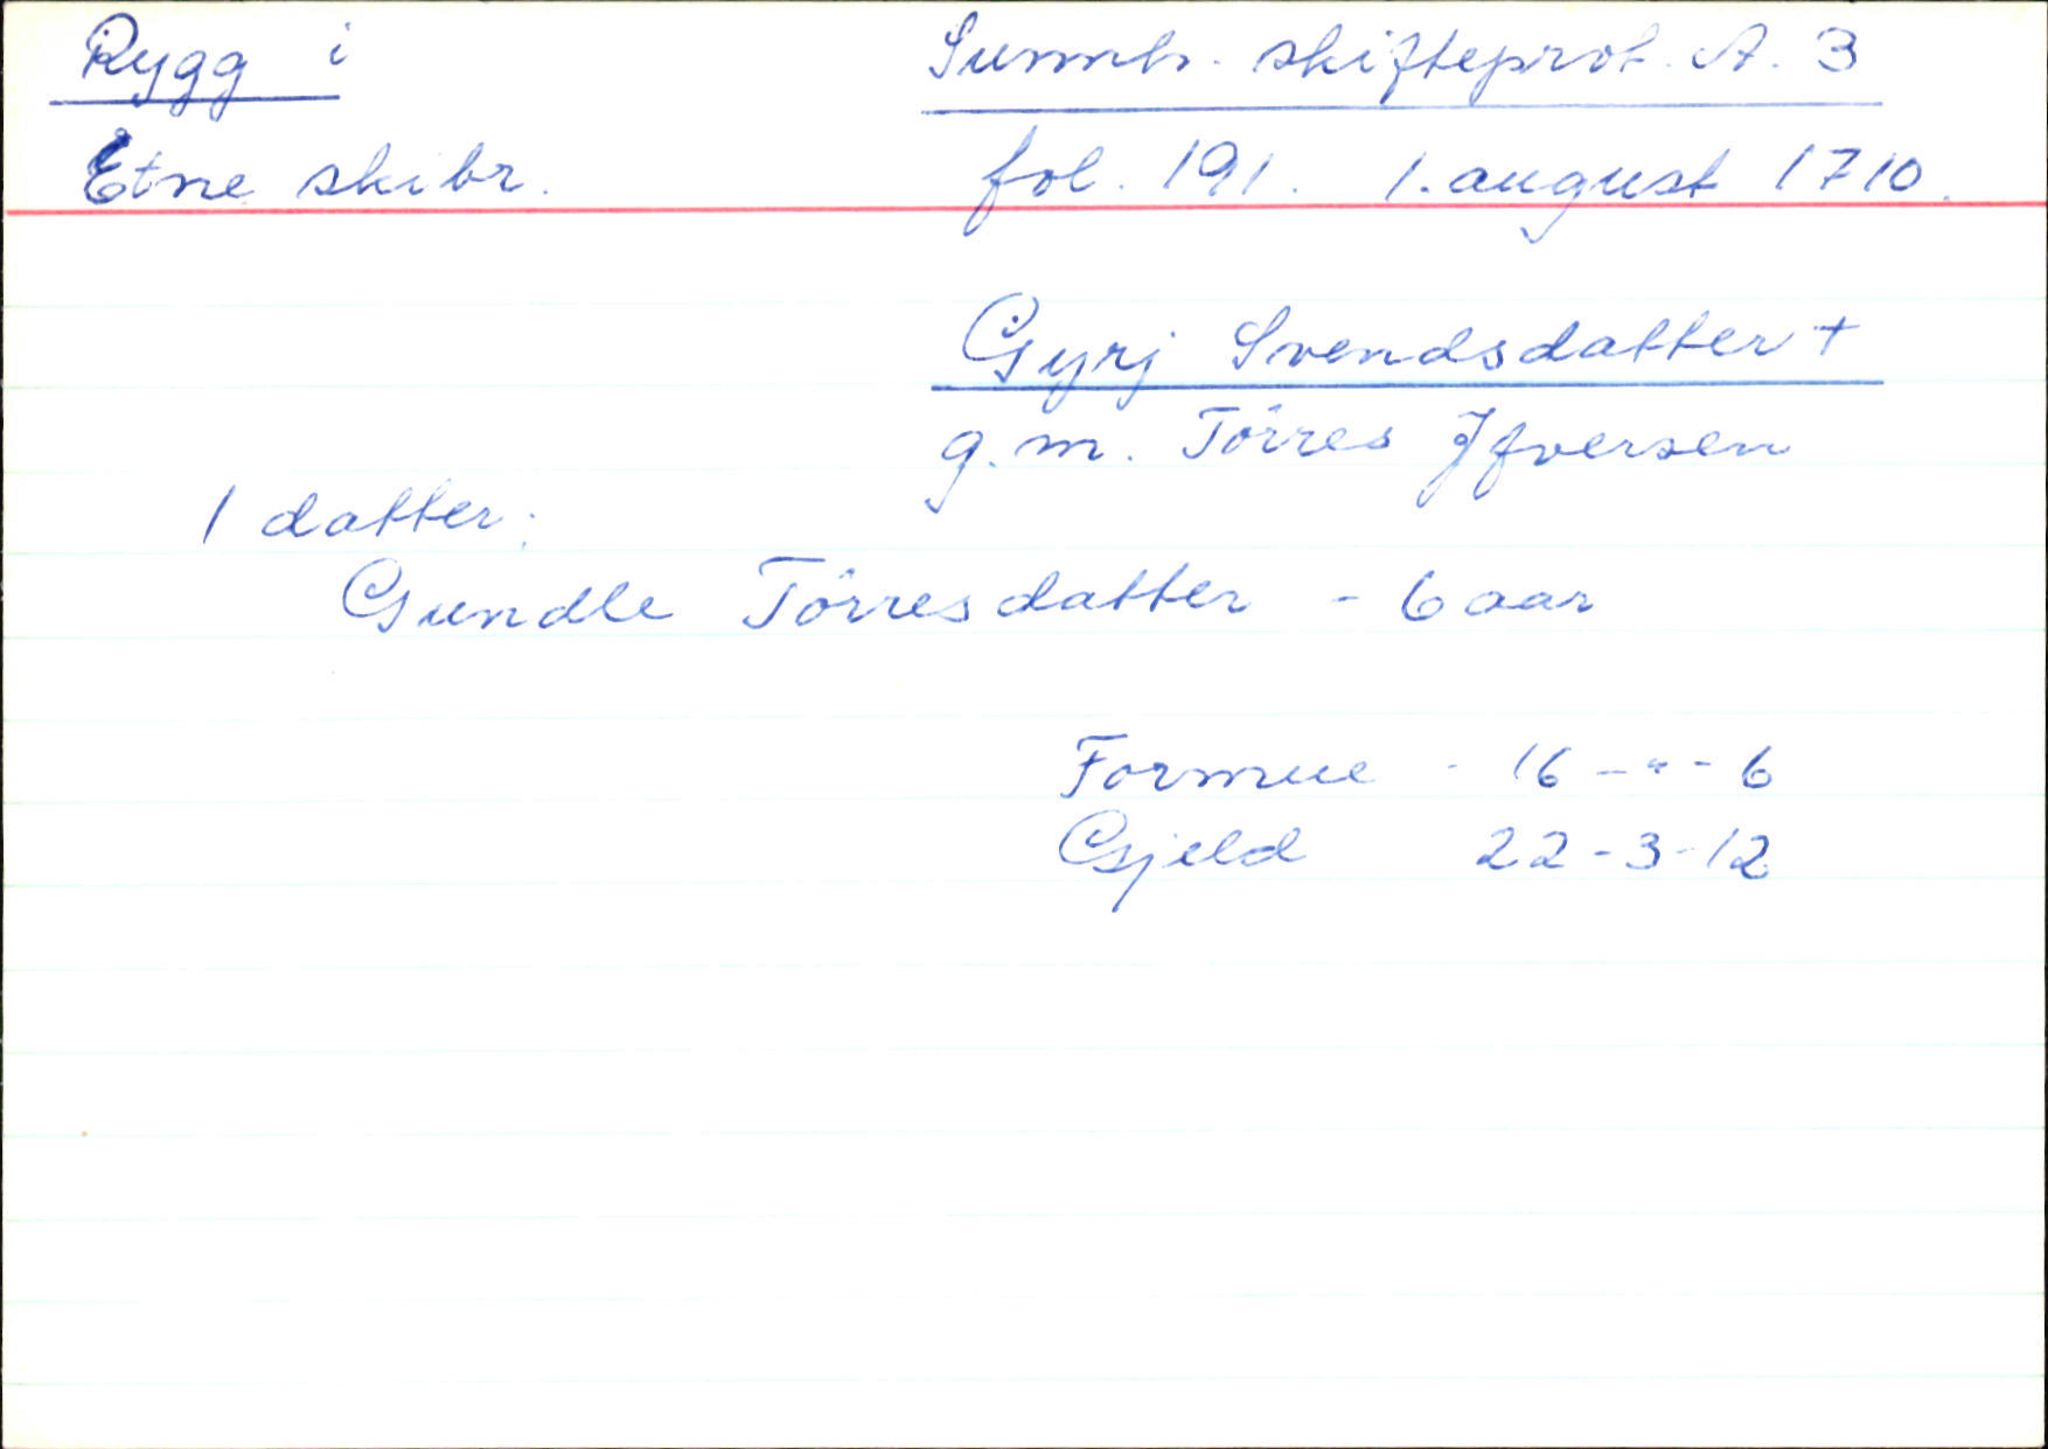 Rygg i
Sunnh. skifteprot. A. 3
Etne skibr.
fol. 191. 1. august 1710.
Gyrj Svendsdatter +
g. m. Törres Jfversen
1 datter:
Gundle Törresdatter - 6 aar
Formue - 16 - " - 6
Gjeld 22 - 3 - 12